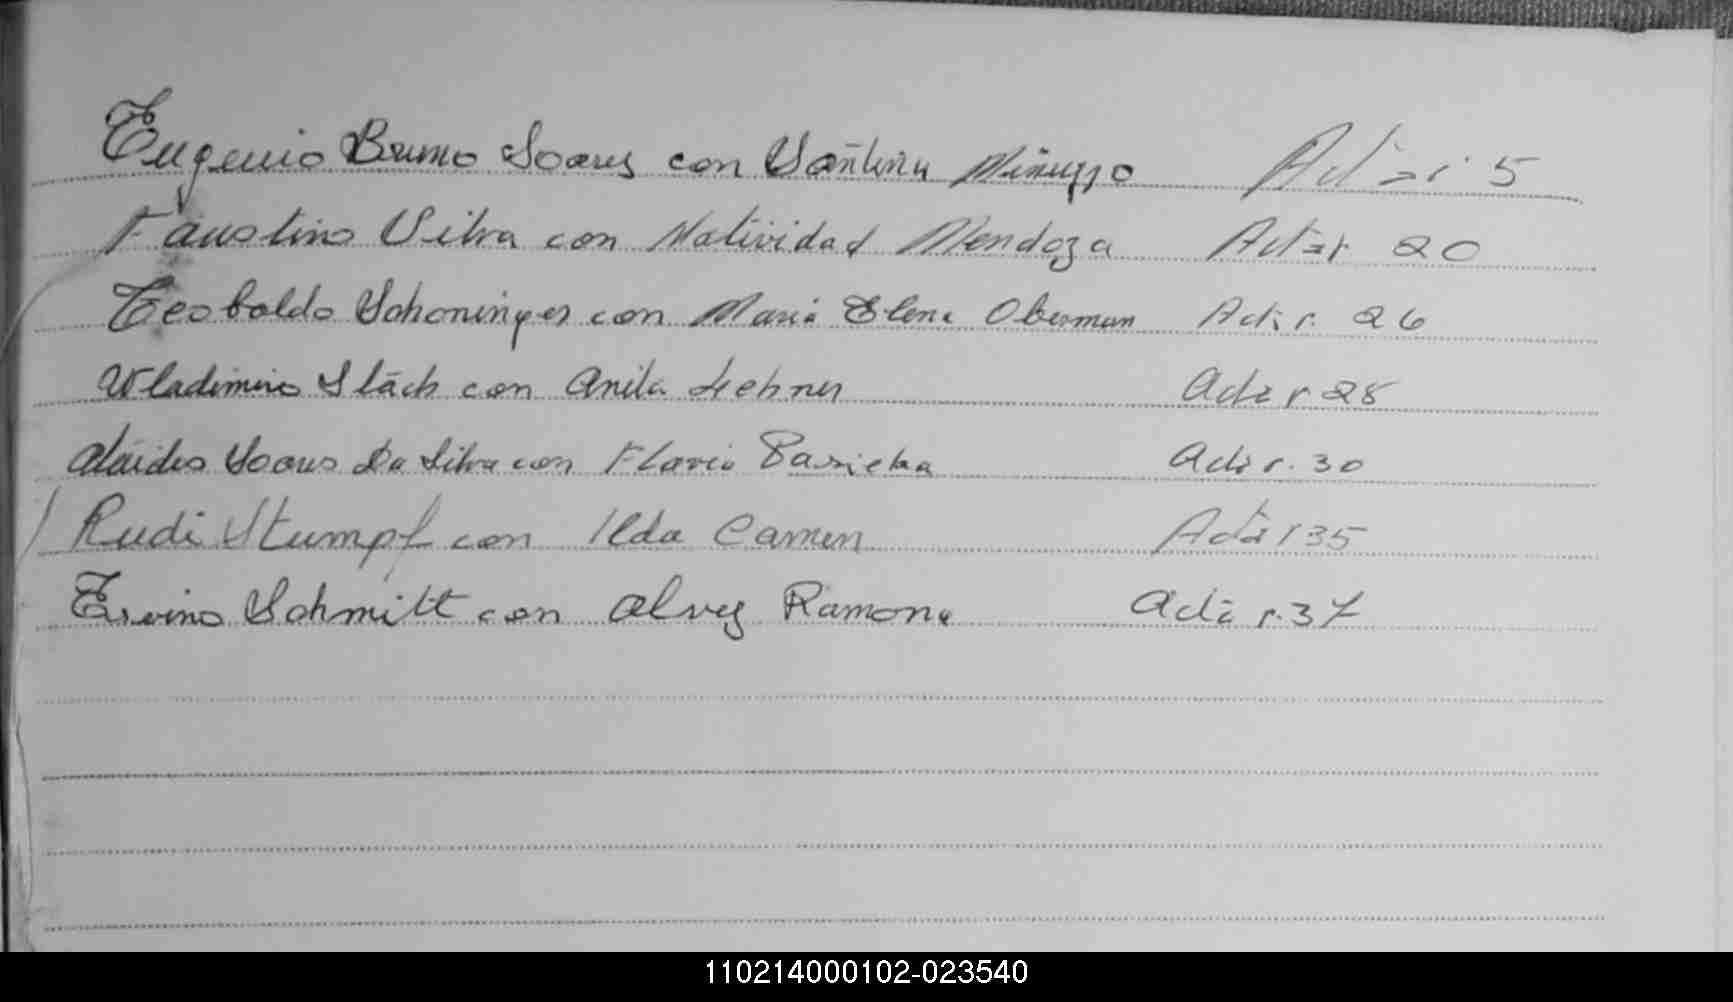 Eugenio Bruno Soares con Santina Minuzzo Acta r 5
Faustino Silva con Natividad Mendoza Acta r 20
Teobaldo Schoninger con Maria Elena Oberman Acta r. 26
Wladimiro Slach con Anita Lehner Acta r 28
Alaides Soares Da Silva con Flavio Acta r. 30
Rudi Stumpf con Ilda Carmen Acta r 35
Ervino Schmitt con Alvez Ramona Acta r. 37
110214000102-023540